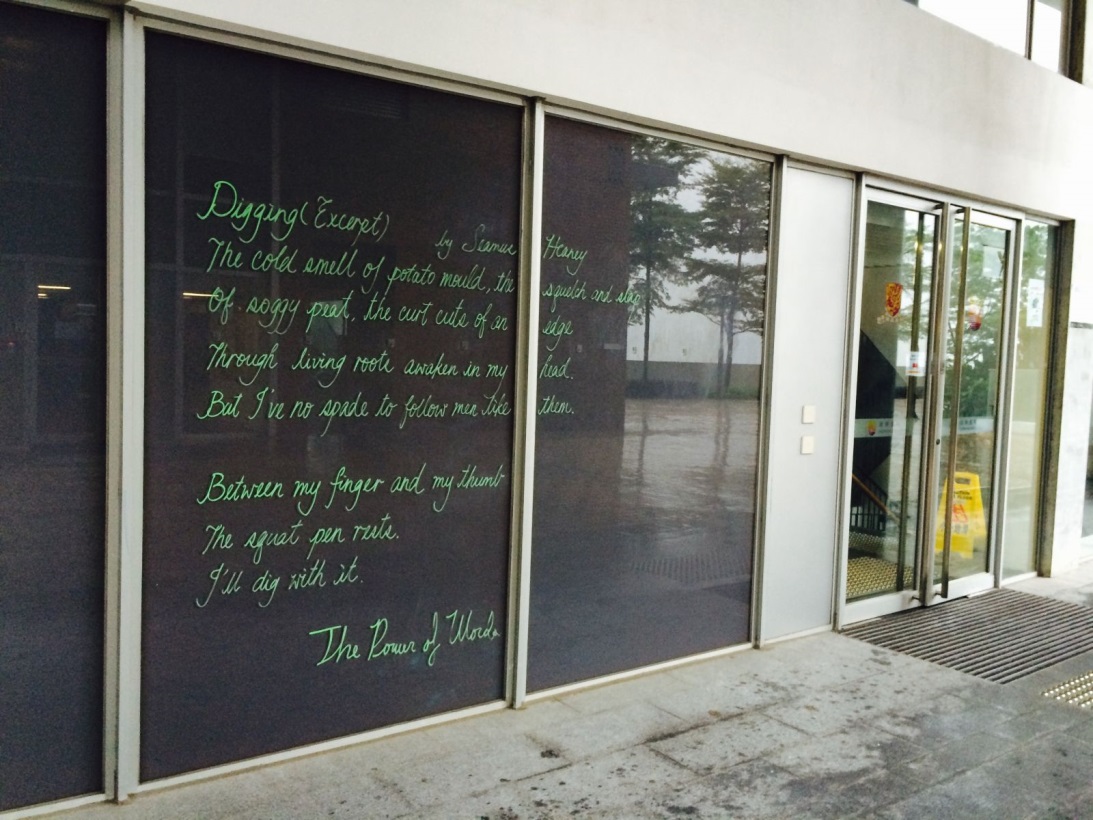 Digging (Excerpt)
by Seamus Heaney
The cold smell of potato mould, the squelch and slap
Of soggy peat, the curt cuts of an edge
Through living roots awaken in my head.
But I've no spade to follow men like them.
Between my finger and my thumb
The squat pen rests.
I'll dig with it.
The Power of Words